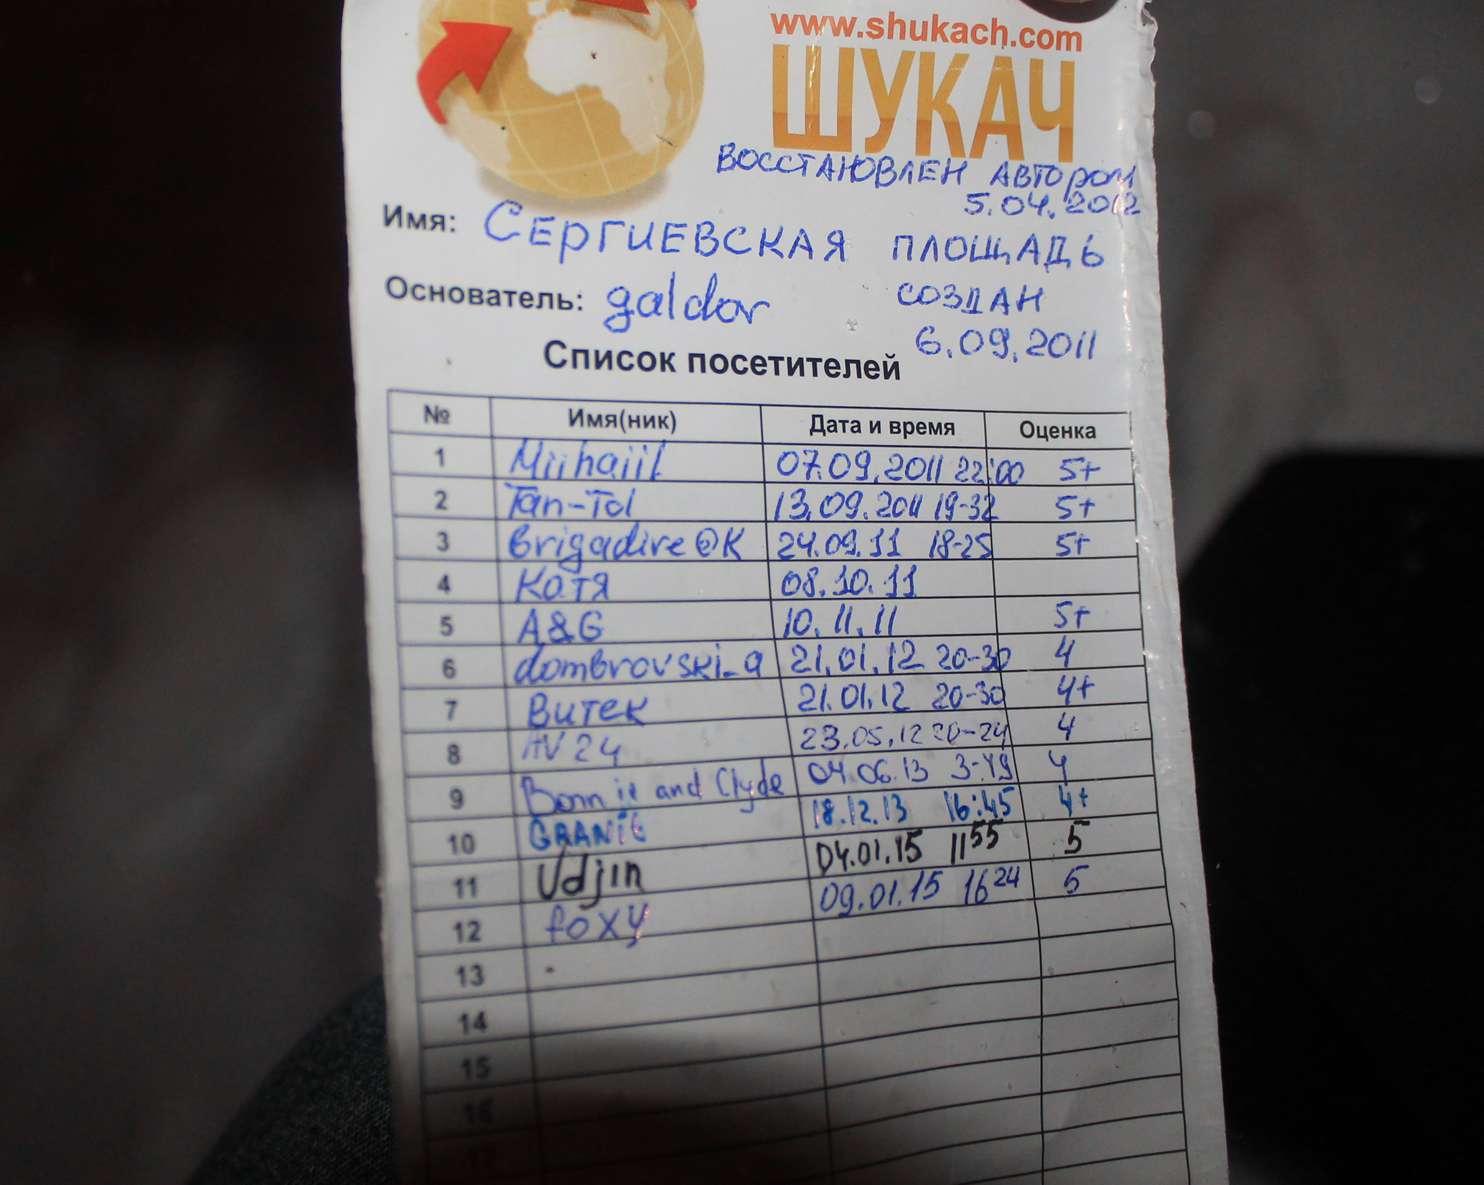 www.shukach.com
ШУКАЧ
ВОССТАНОВЛЕН АВТОРОМ
5.04.2012
Имя: СЕРГИЕВСКАЯ ПЛОЩАДЬ
Основатель: galdor СОЗДАН
6.09.2011
Список посетителей
№ Имя(ник) Дата и время Оценка
1 Miihaiil 07.09.2011 22:00 5+
2 Tan-Tol 13.09.2011 19-32 5+
3 Brigadire@K 24.09.11 18-25 5+
4 Катя 08.10.11
5 A&G 10.11.11 5+
6 dombrovski_a 21.01.12 20-30 4
7 Витек 21.01.12 20-30 4+
8 AV24 23.05.12 20-24 4
9 Bonnie and Clyde 04.06.13 3-49 4
10 GRANIT 18.12.13 16:45 4+
11 Udjin 04.01.15 11 55 5
12 foxy 09.01.15 16 24 5
13
14
15
16
17